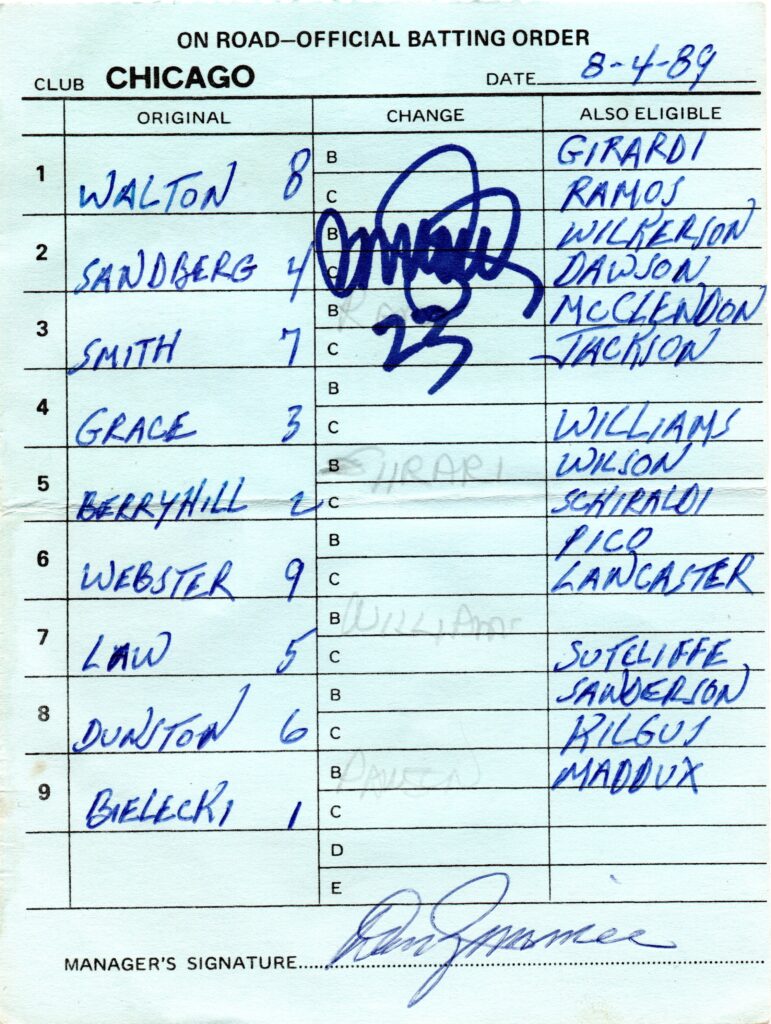 ON ROAD—OFFICIAL BATTING ORDER
CLUB CHICAGO DATE 8-4-89
ORIGINAL CHANGE ALSO ELIGIBLE
B GIRARDI
1 WALTON 8 C RAMOS
B WILKERSON
2 SANDBERG 4 C DAWSON
B McCLENDON
3 SMITH 7 23 C JACKSON
B
4 GRACE 3 C WILLIAMS
B GIRARI WILSON
5 BERRYHILL 2 C SCHIRALDI
B PICO
6 WEBSTER 9 C LANCASTER
B WILLIAMS
7 LAW 5 C SUTCLIFFE
B SANDERSON
8 DUNSTON 6 C KILGUS
B MADDUX
9 BIELECKI 1 C
D
E
MANAGER'S SIGNATURE Don Zimmer